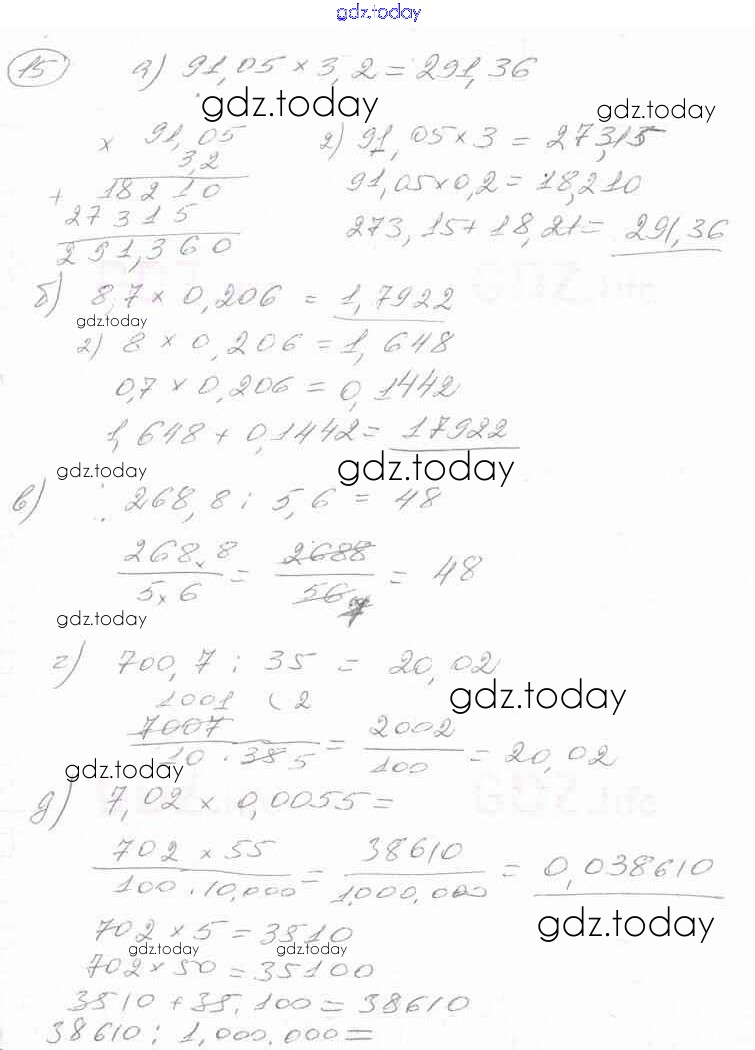 gdz.today
15 а) 91,05 × 3,2 = 291,36
gdz.today
gdz.today
× 91,05
3,2
+ 18210
27315
291,360
2) 91,05 × 3 = 273,15
91,05 × 0,2 = 18,210
273,15 + 18,21 = 291,36
б) 8,7 × 0,206 = 1,7922
gdz.today
2) 8 × 0,206 = 1,648
0,7 × 0,206 = 0,1442
1,648 + 0,1442 = 17922
gdz.today
gdz.today
в) 268,8 : 5,6 = 48
268,8 / 5,6 = 2688 / 56 = 48
gdz.today
г) 700,7 : 35 = 20,02
1001 2
gdz.today
7007 / 10 · 35 5 = 2002 / 100 = 20,02
gdz.today
д) 7,02 × 0,0055 =
702 × 55 / 100 · 10,000 = 38610 / 1,000,000 = 0,038610
gdz.today
702 × 5 = 3510
gdz.today gdz.today
702 × 50 = 35100
3510 + 35,100 = 38610
38610 : 1,000,000 =